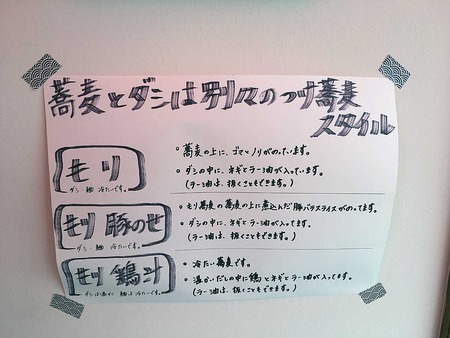 蕎麦とダシは別々のつけ蕎麦
スタイル
モリ
ダシ・麺 冷たいです。
・蕎麦の上に、ゴマとノリがのっています。
・ダシの中に、ネギとラー油が入っています。
(ラー油は、抜くこともできます。)
モリ 豚のせ
ダシ・麺 冷たいです。
・モリ蕎麦の蕎麦の上に煮込んだ豚バラスライスがのってます。
・ダシの中に、ネギとラー油が入ってます。
(ラー油は、抜くこともできます。)
モリ 鶏汁
ダシは温かく 麺は冷たいです。
・冷たい蕎麦です。
・温かいだしの中に鶏とネギとラー油が入ってます。
(ラー油は、抜くこともできます。)